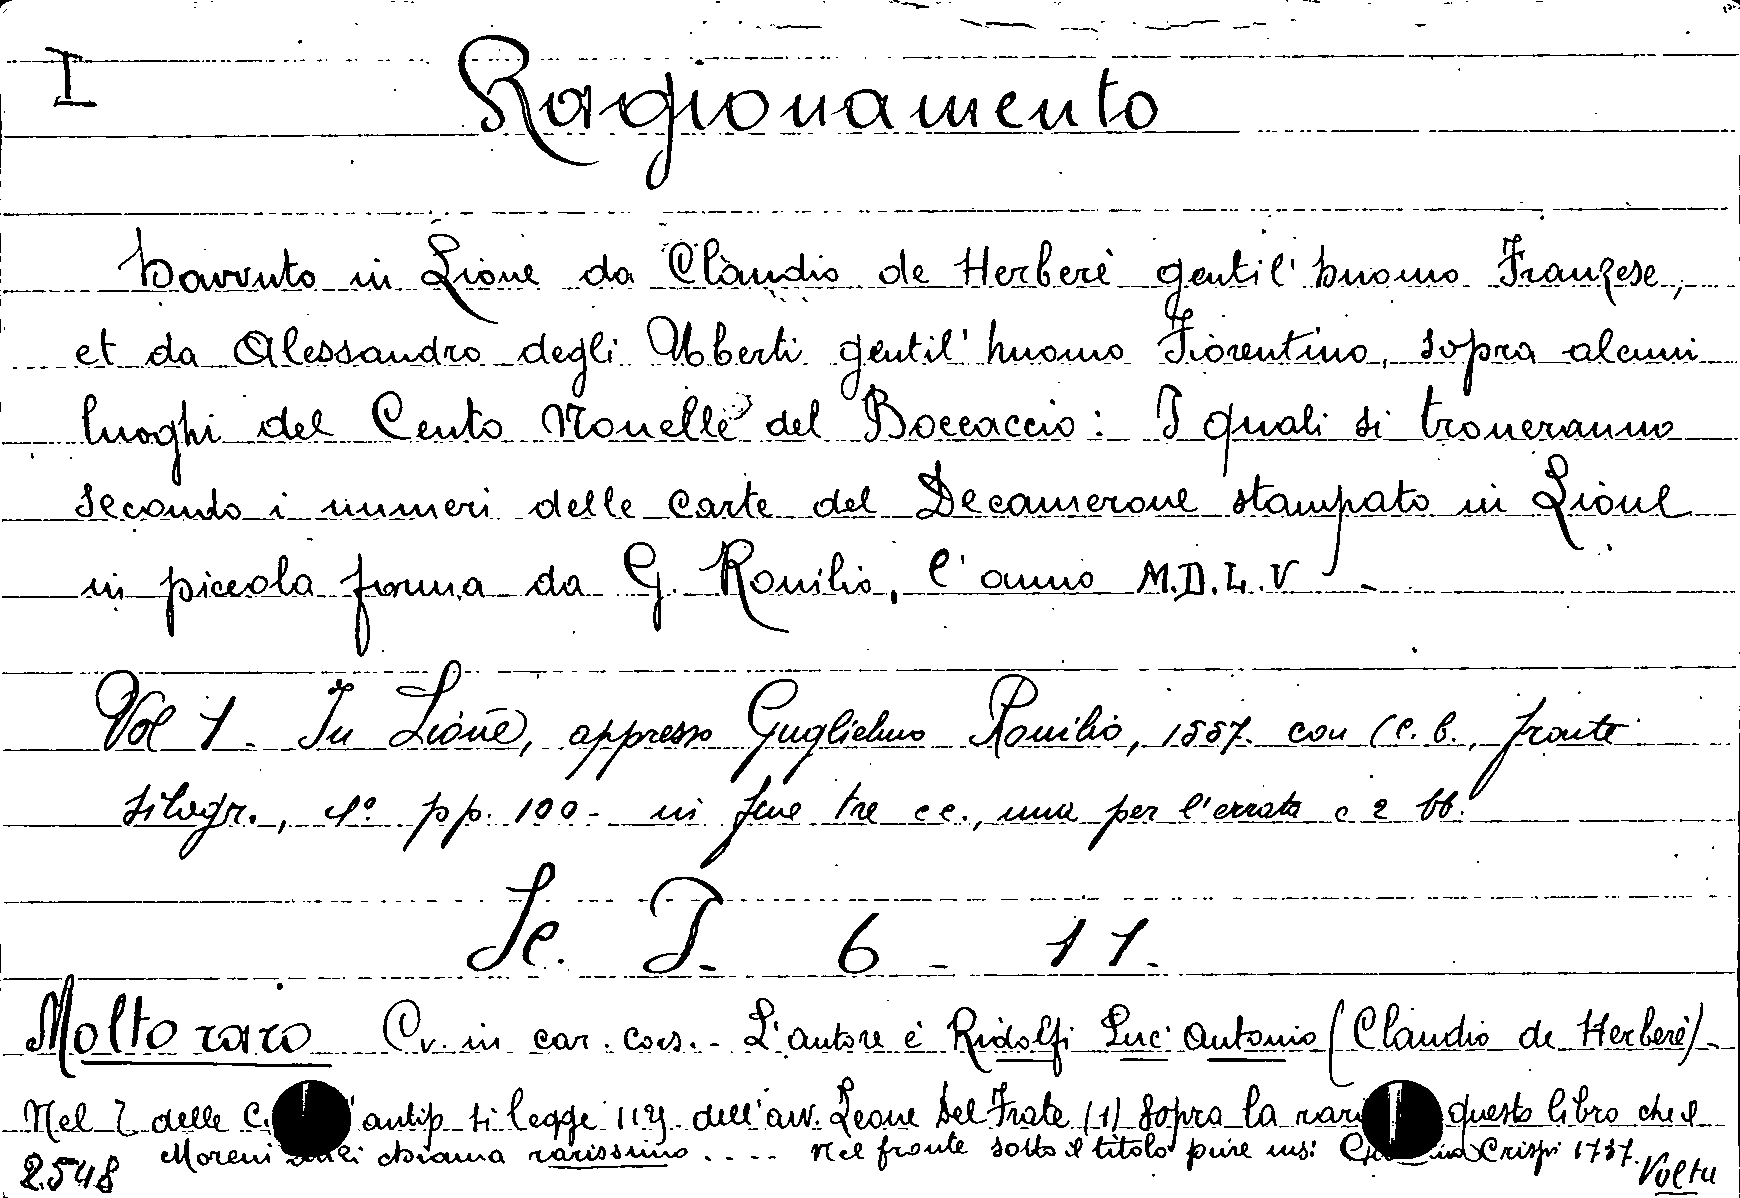 I
Ragionamento
havvuto in Lione da Claudio de Herberè gentil'huomo Franzese,
et da Alessandro degli Uberti gentil'huomo Fiorentino, sopra alcuni
luoghi del Cento Nouelle del Boccaccio: I quali si troueranno
secondo i numeri delle carte del Decamerone stampato in Lione
in piccola forma da G. Rouilio, l'anno M.D.L.V -
Vol 1. In Lione, appresso Guglielmo Rouilio, 1557. con (c. b., fronte
silogr., 4º pp. 100 - in fine tre cc., una per l'errata e 2 bb.
Se. I. 6 - 11.
Molto raro Cv. in car. cors. - L'autore è Ridolfi Luc'Antonio (Claudio de Herberè) -
Nel delle antip si legge dell'avv. Leone Del Frate (1) sopra la questo libro che il
Moreni chiama rarissimo .... Nel fronte sotto il titolo pure ms: Crispi 1737.
2.548 Volta